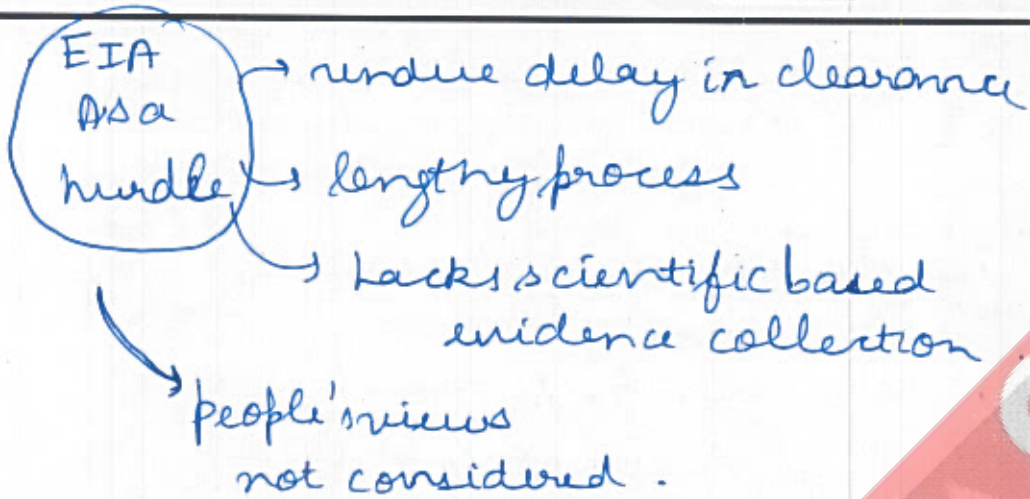 EIA
As a
hurdle
→ undue delay in clearance
→ lengthy process
→ Lacks scientific based
evidence collection
people's views
not considered.